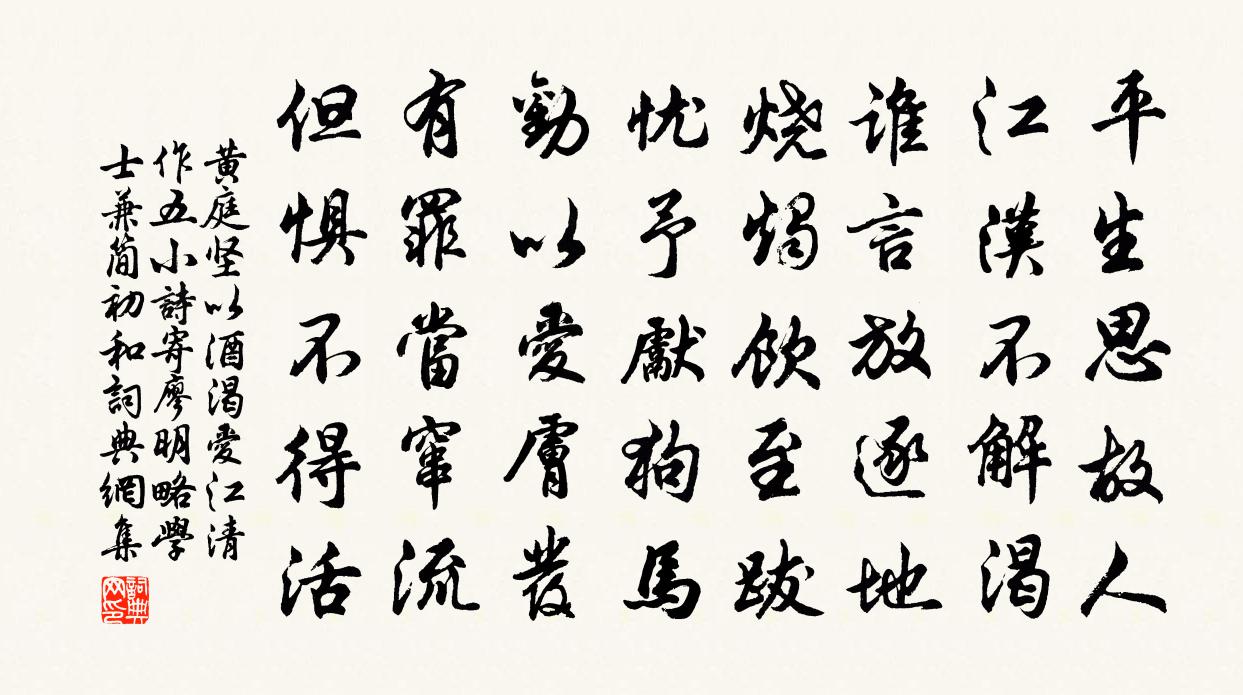 平生思故人
江漢不解渴
谁言放逐地
烧烛饮至跋
忧予獻狗馬
勸以愛膚髮
有罪當竄流
但惧不得活
黄庭坚以酒渴愛江清
作五小詩寄廖明略學
士兼简初和詞典網集
詞典
网印